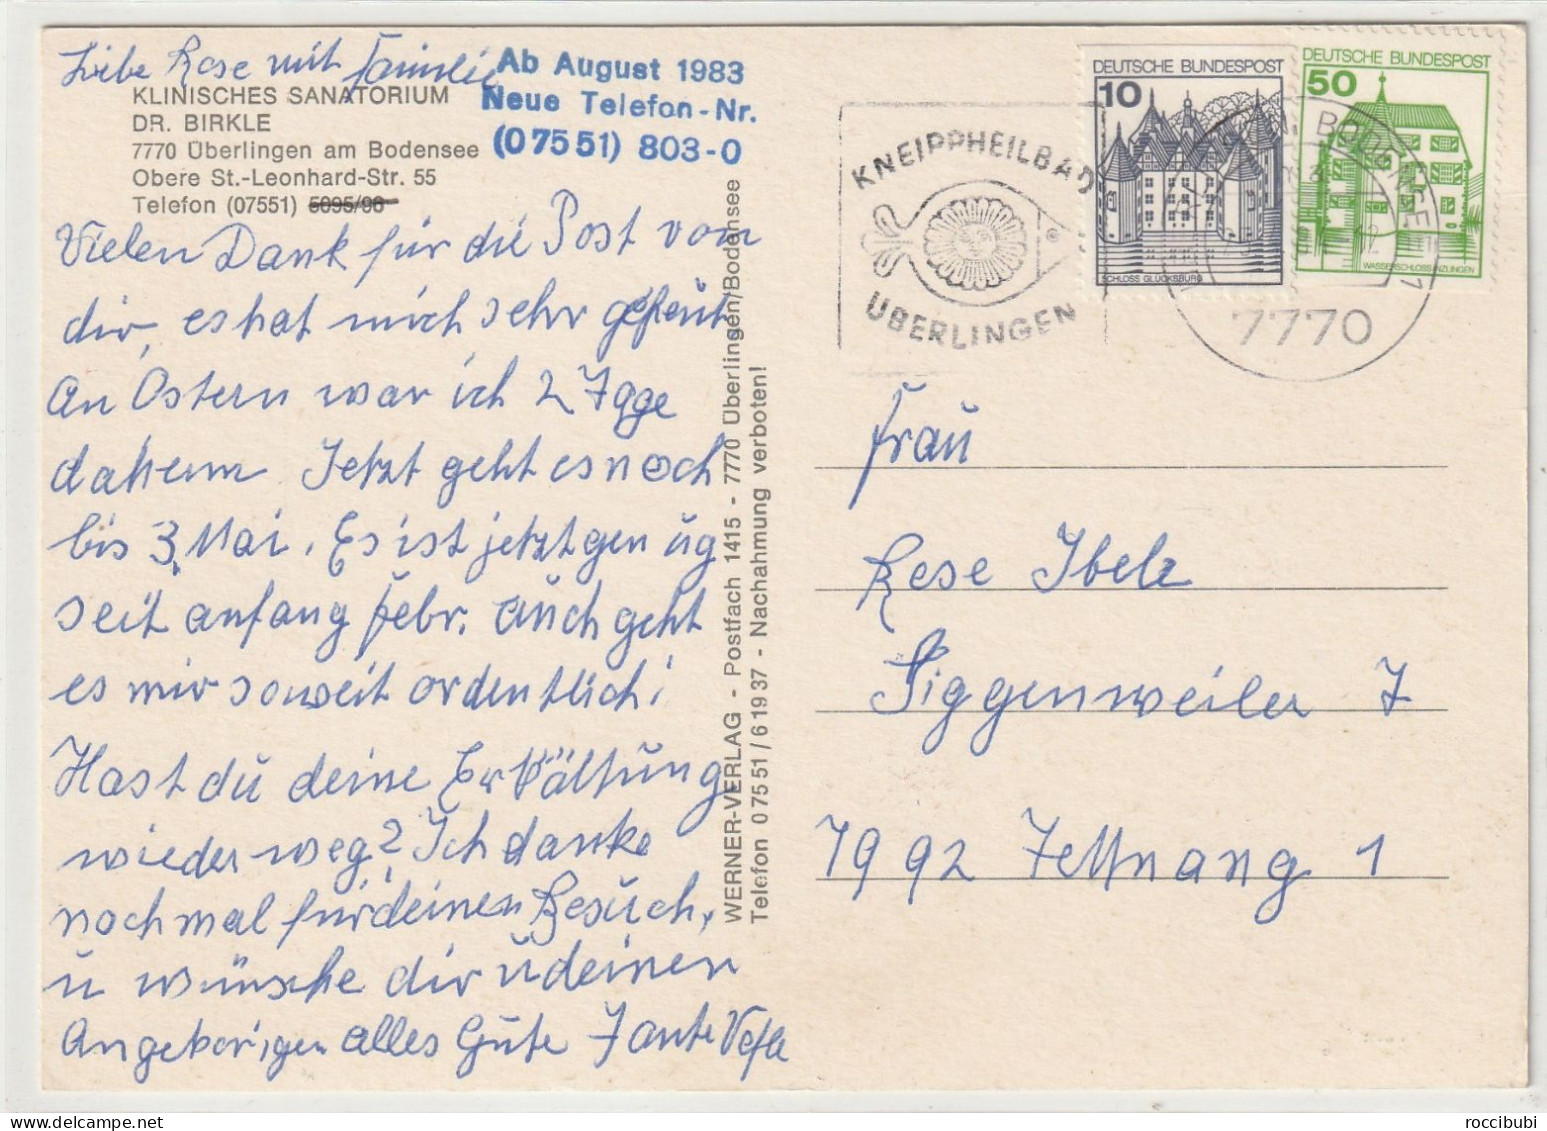 Liebe Rose mit Familie
KLINISCHES SANATORIUM
DR. BIRKLE
7770 Überlingen am Bodensee
Obere St.-Leonhard-Str. 55
Telefon (07551) 5095/96
Ab August 1983
Neue Telefon-Nr.
(07551) 803-0
Vielen Dank für die Post von
dir, es hat mich sehr gefreut
An Ostern war ich 2 Tage
daheim Jetzt geht es noch
bis 3. Mai. Es ist jetzt genug
seit anfang Febr. auch geht
es mir soweit ordentlich!
Hast du deine Erkältung
wieder weg? Ich danke
nochmal für deinen Besuch,
u wünsche dir u deinen
Angehörigen alles Gute Tante
WERNER-VERLAG - Postfach 1415 - 7770 Überlingen/Bodensee
Telefon 07551/61937 - Nachahmung verboten!
KNEIPPHEILBAD
ÜBERLINGEN
DEUTSCHE BUNDESPOST
10
SCHLOSS GLÜCKSBURG
DEUTSCHE BUNDESPOST
50
WASSERSCHLOSS INZLINGEN
7770
Frau
Rose
Siggenweiler 7
7992 Tettnang 1
roccibubi